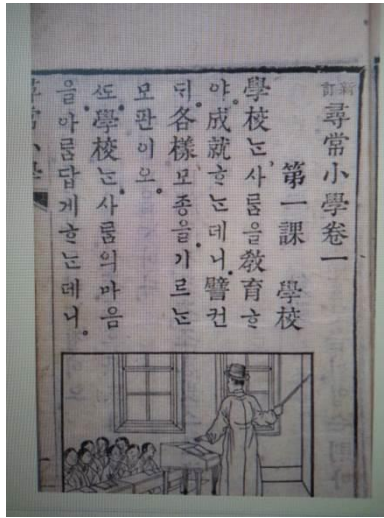 新訂 尋常小學卷一
第一課 學校
學校ᄂᆞᆫ、사ᄅᆞᆷ을敎育ᄒᆞ
야。成就ᄒᆞᄂᆞᆫ데니。譬컨
ᄃᆡ各樣모종을。기르ᄂᆞᆫ
모판이오。
ᄯᅩ。學校ᄂᆞᆫ。사ᄅᆞᆷ의마음
을。아ᄅᆞᆷ답게ᄒᆞᄂᆞᆫ데니。